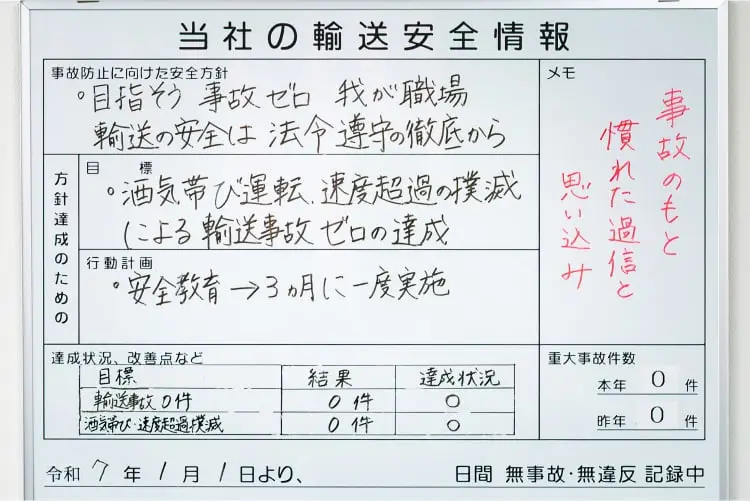 当社の輸送安全情報
事故防止に向けた安全方針
。目指そう 事故ゼロ 我が職場
輸送の安全は 法令遵守の徹底から
方針達成のための
目 標
。酒気帯び運転、速度超過の撲滅
による輸送事故ゼロの達成
行動計画
。安全教育→3ヵ月に一度実施
メモ
事故のもと
慣れた過信と
思い込み
達成状況、改善点など
目標 結果 達成状況
輸送事故0件 0件 ○
酒気帯び・速度超過撲滅 0件 ○
重大事故件数
本年 0 件
昨年 0 件
令和 7 年 1 月 1 日より、 日間 無事故・無違反 記録中